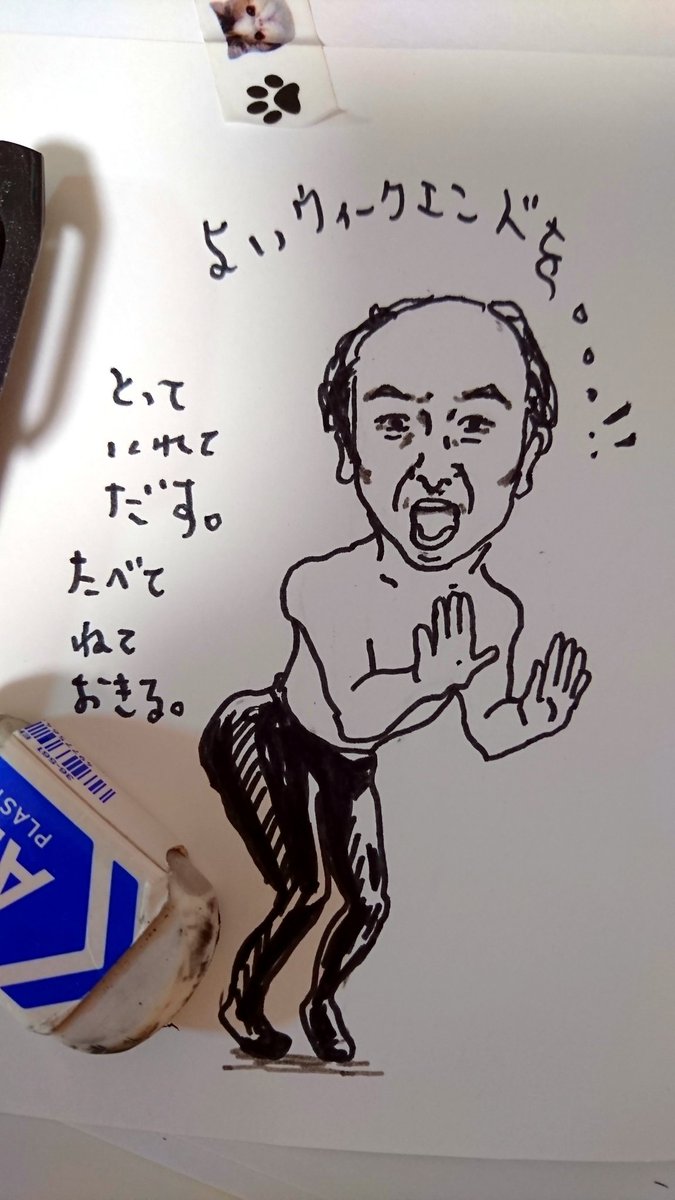 よいウィークエンドを。。。
とって
いれて
だす。
たべて
ねて
おきる。
PLAST